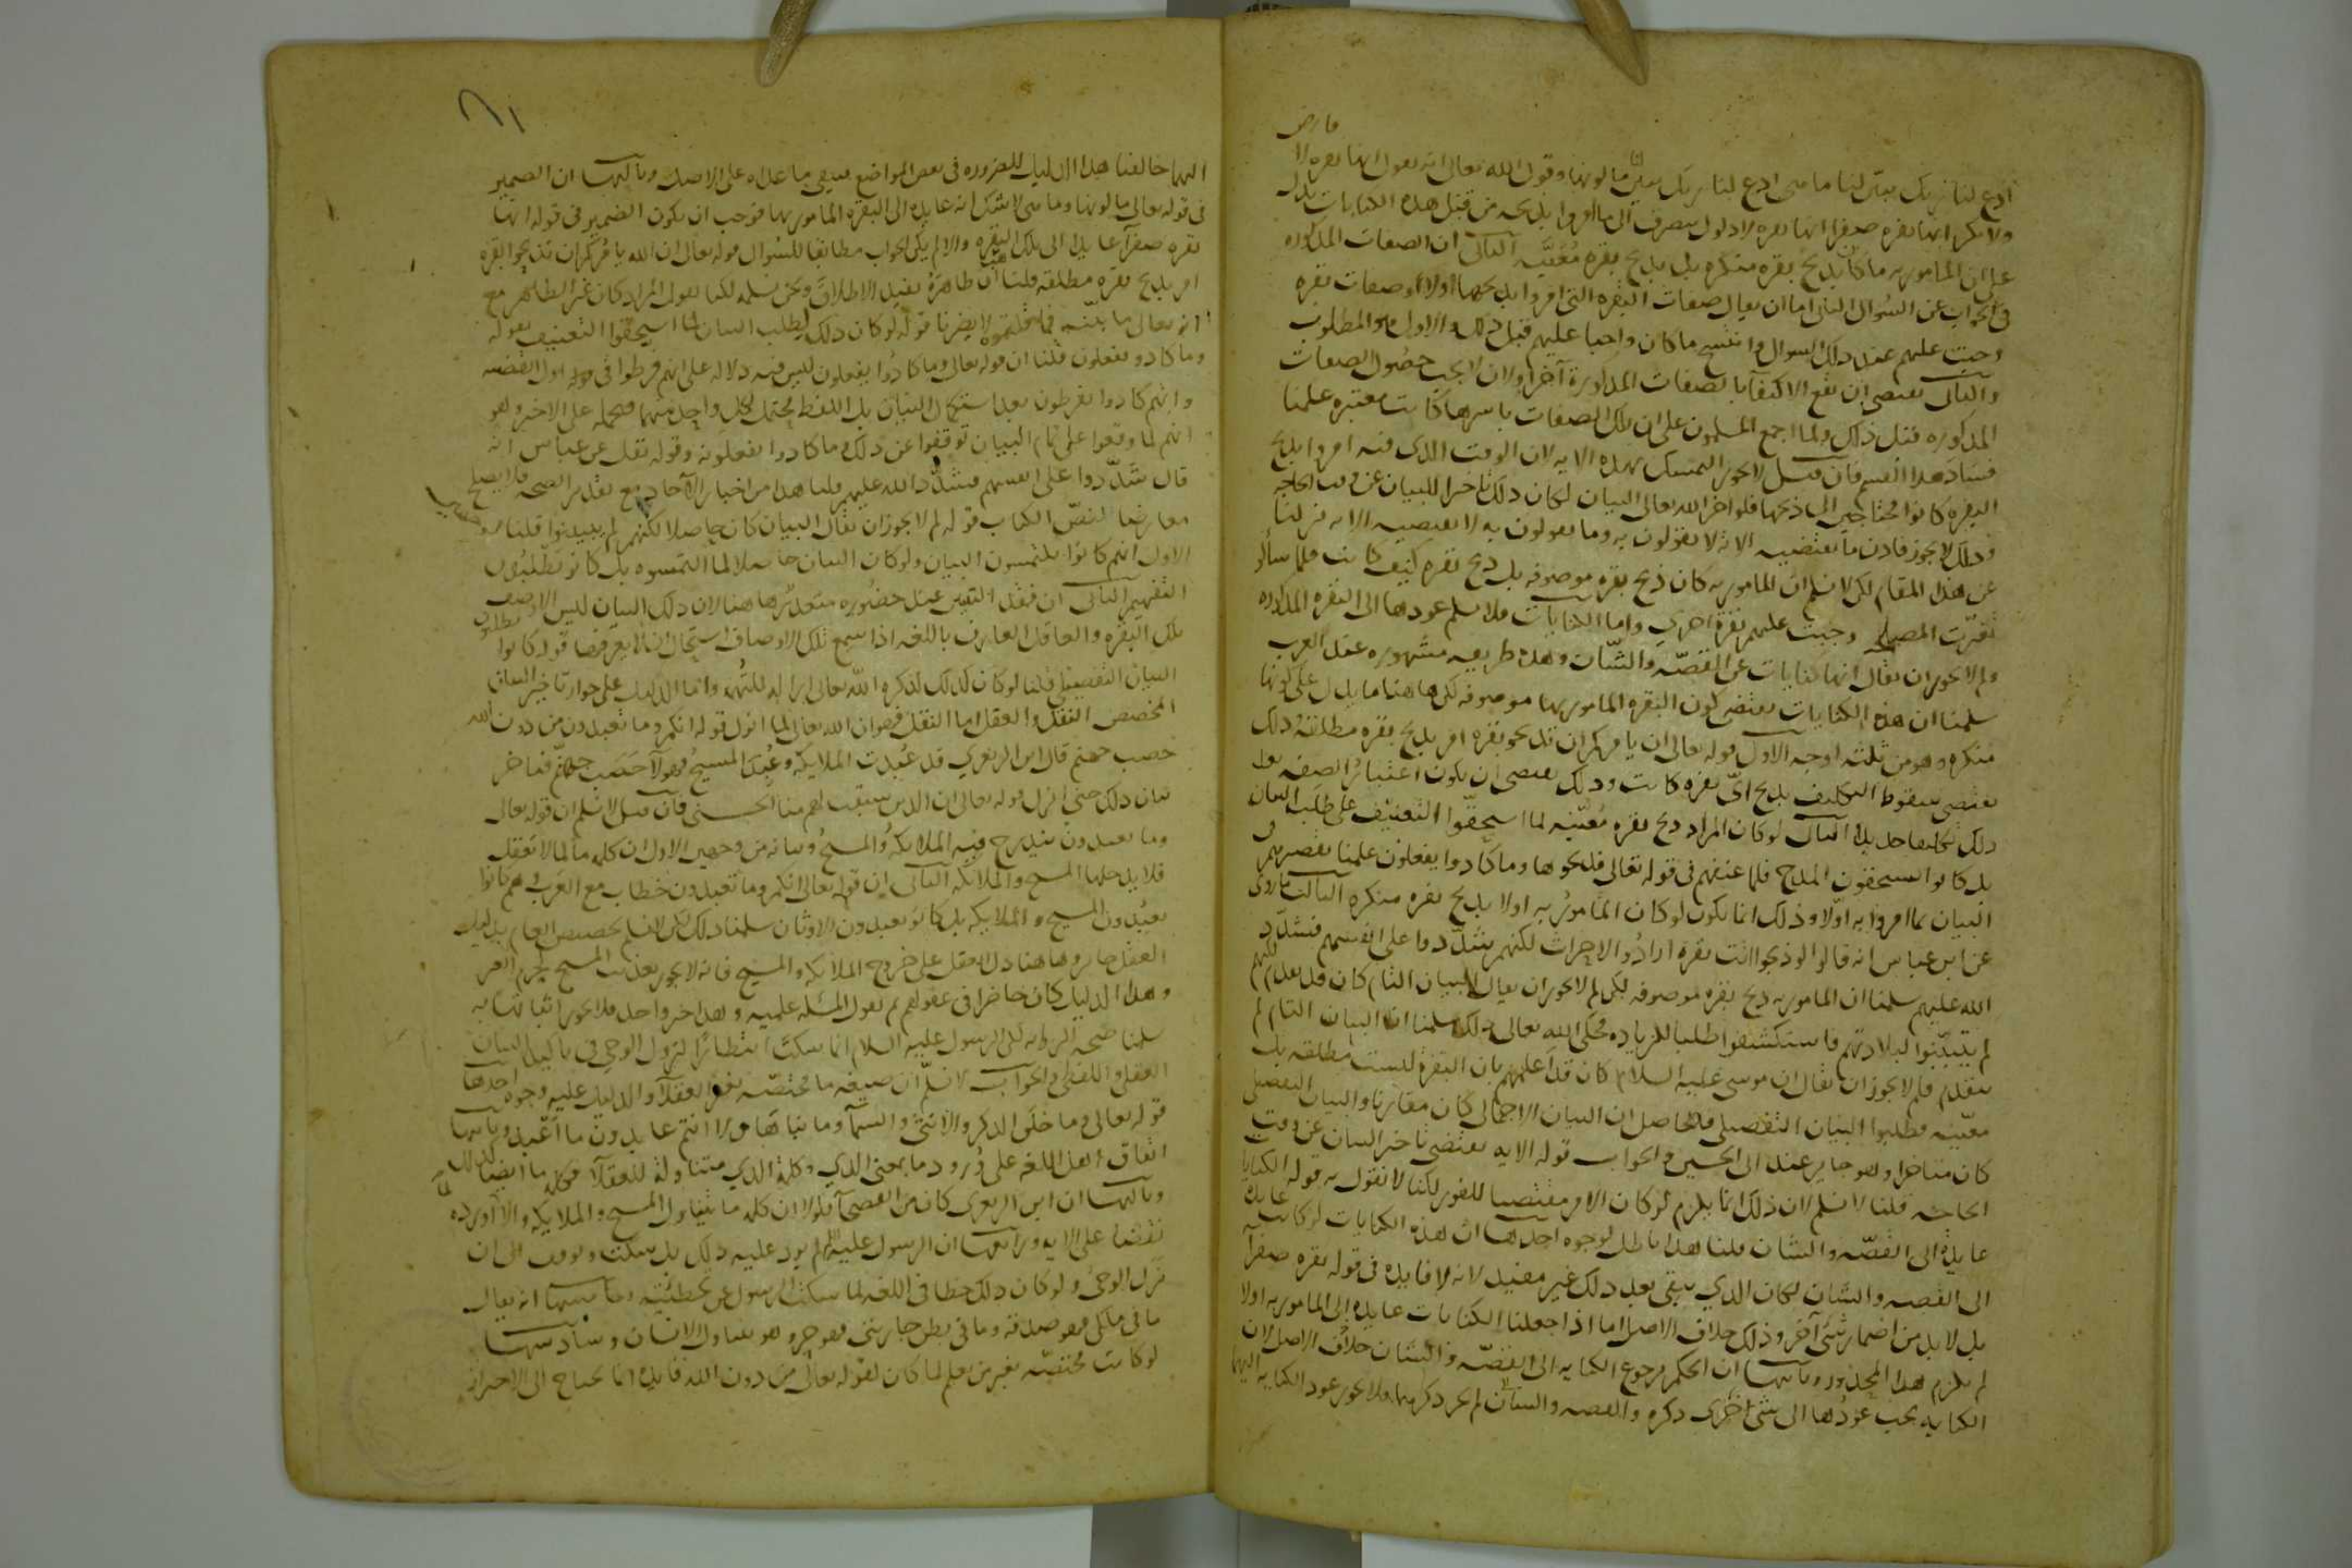 فارض
ادع لنا ربك يبين لنا ما هى ادع لنا ربك يبين لنا ما لونها وقول الله تعالى انه يقول انها بقره لا
ولا بكر انها بقره صفرا انها بقره لا ذلول ينصرف الى ما امروا بذبحه من قبل هذه الكنايات تدل
على ان المامور به ما كان ذبح بقره منكره بل ذبح بقره معينه الثانى ان الصفات المذكوره
فى الجواب عن السوال الثانى اما ان يقال صفات البقره التى امروا بذبحها اولا او صفات بقره
وجبت عليهم عند ذلك السوال وانتسخ ما كان واجبا عليهم قبل ذلك والاول هو المطلوب
والثانى يقتضى ان يقع الاكتفا بالصفات المذكورة آخرا وان لا يجب حصول الصفات
المذكوره قبل ذلك ولما اجمع المسلمون على ان تلك الصفات باسرها كانت معتبره علمنا
فساد هذا القسم فان قيل لا يجوز التمسك بهذه الايه لان الوقت الذى فيه امروا بذبح
البقره كانوا محتاجين الى ذبحها فلو اخر الله تعالى البيان لكان ذلك تاخيرا للبيان عن وقت الحاجه
وذلك لا يجوز فاذن ما تقتضيه الايه لا تقولون به وما تقولون به لا تقتضيه الايه نزلنا
عن هذا المقام لكن لا نسلم ان المامور به كان ذبح بقره موصوفه بل ذبح بقره كيف كانت فلما سألوا
تغيرت المصلحه وجبت عليهم بقرة اخرى واما الكنايات فلا نسلم عودها الى البقره المذكوره
ولم لا يجوز ان يقال انها كنايات عن القصّه والشان وهذه طريقه مشهوره عند العرب
سلمنا ان هذه الكنايات تقتضى كون البقره المامور بها موصوفه لكن هاهنا ما يدل على كونها
منكره وهو من ثلثه اوجه الاول قوله تعالى ان الله يامركم ان تذبحوا بقره امر بذبح بقره مطلقه وذلك
يقتضى سقوط التكليف بذبح اىّ بقره كانت وذلك يقتضى ان يكون اعتبار الصفه بعد
ذلك تكليفا جديدا الثانى لو كان المراد ذبح بقره معيّنه لما استحقّوا التعنيف على طلب البيان
بل كانوا يستحقون المدح فلما عنفهم فى قوله تعالى فذبحوها وما كادوا يفعلون علمنا تقصيرهم فى
البيان بما امروا به اوّلا وذلك انما يكون لو كان المامور به اولا بذبح بقره منكره الثالث ما روى
عن ابن عباس انه قال لو ذبحوا ايت بقره ارادوا لاجزات لكنهم شدّدوا على انفسهم فشدّد
الله عليهم سلمنا ان المامور به ذبح بقره موصوفه لكن لم لا يجوز ان يقال البيان التام كان قد تقدم لكنهم
لم يتبيّنوا لبلادتهم فاستكشفوا طلبا للزياده فحكى الله تعالى ذلك سلمنا ان البيان التام لم
يتقدم فلم لا يجوز ان يقال ان موسى عليه السلام كان قد اعلمهم بان البقره ليست مطلقه بل
معيّنه فطلبوا البيان التفصيلى فالحاصل ان البيان الاجمالى كان مقارنا والبيان التفصيلى
كان متاخرا وهو جايز عند ابى الحسين والجواب قوله الايه تقتضى تاخير البيان عن وقت
الحاجه قلنا لا نسلم لان ذلك انما يلزم لو كان الامر مقتضيا للفور لكنا لا نقول به قوله الكنايات
عايدة الى القصّه والشان قلنا هذا باطل لوجوه احدها ان هذه الكنايات لو كانت عايدة
الى القصه والشان لكان الذي يبقى بعد ذلك غير مفيد لانه لا فايده فى قوله بقره صفرآ
بل لا بد من اضمار شىء آخر وذلك خلاف الاصل اما اذا جعلنا الكنايات عايدة الى المامور به اولا
لم يلزم هذا المحذور وثانيها ان الحكم برجوع الكنايه الى القصّه والشان خلاف الاصل لان
الكنايه يجب عودها الى شىء جرى ذكره والقصه والشان لم يجر ذكرهما فلا يجوز عود الكنايه اليهما
اليهما خالفنا هذا الدليل للضروره فى بعض المواضع فيبقى ما عداه على الاصل وثالثها ان الضمير
فى قوله تعالى ما لونها وما هى لا شك انه عايدة الى البقره المامور بها فوجب ان يكون الضمير فى قوله انها
بقره صفرآ عايدا الى تلك البقره والا لم يكن الجواب مطابقا للسوال قوله تعالى ان الله يامركم ان تذبحوا بقره
امر بذبح بقره مطلقه قلنا هب ان ظاهره يفيد الاطلاق ونحن نسلمه لكنا نقول المراد كان غير الظاهر مع
انه تعالى ما بيّنه فما قلتموه لا يضرنا قوله لو كان ذلك لطلب البيان لما استحقوا التعنيف بقوله
وما كادوا يفعلون قلنا ان قوله تعالى وما كادوا يفعلون ليس فيه دلاله على انهم فرطوا فى اول القصه
وانهم كادوا يفرطون بعد استكمال البيان بل اللفظ محتمل لكل واحد منهما فنحمله على الاخير وهو
انهم لما وقفوا على تمام البيان توقفوا عن ذلك وما كادوا يفعلونه وقوله نقل عن عباس انه
قال شدّدوا على انفسهم فشدّد الله عليهم قلنا هذا من اخبار الآحاد مع تقدير الصحه فلا يصلح
معارضا لنصّ الكتاب قوله لم لا يجوز ان يقال البيان كان حاصلا لكنهم لم يتبينوا قلنا
الاول انهم كانوا يلتمسون البيان ولو كان البيان حاصلا لما التمسوه بل كانوا يطلبون
التفهيم الثانى ان فقد التبيّن عند حضوره متعذّر هاهنا لان ذلك البيان ليس الا وصف
تلك البقره والعاقل العارف باللغه اذا سمع تلك الاوصاف استحال ان لا يعرفها قوله كانوا يطلبون
البيان التفصيلى قلنا لو كان كذلك لذكره الله تعالى ازاله للتهمه واما الدليل على جواز تاخير البيان
المخصص النقل والعقل اما النقل فهو ان الله تعالى لما انزل قوله انكم وما تعبدون من دون الله
حصب جهنم قال ابن الزبعري قد عُبدت الملايكة وعُبد المسيح فهولآ حصب جهنّم فتاخر
بيان ذلك حتى انزل قوله تعالى ان الذين سبقت لهم منا الحسنى فان قيل لا نسلم ان قوله تعالى
وما تعبدون يندرج فيه الملايكه والمسيح وبيانه من وجهين الاول ان كلمه ما لما لا يعقل
فلا يدخلها المسيح والملايكه الثانى ان قوله تعالى انكم وما تعبدون خطاب مع العرب وهم ما كانوا
يعبدون المسيح والملايكه بل كانوا يعبدون الاوثان سلمنا ذلك لكن لا نسلم تخصيص العام بدليل
العقل جايز وهاهنا دل العقل على خروج الملايكه والمسيح فانه لا يجوز تعذيب المسيح بجرم الغير
وهذا الدليل كان حاضرا فى عقولهم ثم نقول المسئلة علميه وهذا خبر واحد فلا يجوز اثباتها به
سلمنا صحه الروايه لكن الرسول عليه السلام انما سكت انتظارا لنزول الوحى فى تاكيد البيان
العقلى واللفظى والجواب لا نسلّم ان صيغه ما مختصّه بغير العقلآ والدليل عليه وجوه احدها
قوله تعالى وما خلق الذكر والانثى والسمآ وما بناها ولا انتم عابدون ما اعبد وثانيها
اتفاق اهل اللغه على وُرود ما بمعنى الذي وكلمة الذي متناولة للعقلآ فكلمه ما ايضا كذلك
وثالثها ان ابن الزبعرى كان من الفصحآ فلولا ان كلمه ما تتناول المسيح والملايكه والا لما اورده
نقضا على الايه ورابعها ان الرسول عليه السلام لم يرد عليه ذلك بل سكت وتوقف الى ان
نزل الوحى ولو كان ذلك خطا فى اللغه لما سكت الرسول عن تخطئته وخامسها انه يقال
ما فى ملكى فهو صدقه وما فى بطن جاريتى فهو حر وهو يتناول الانسان وسادسها
لو كانت مختصّه بغير من يعلم لما كان لقوله تعالى من دون الله فايدة انما يحتاج الى الاحتراز